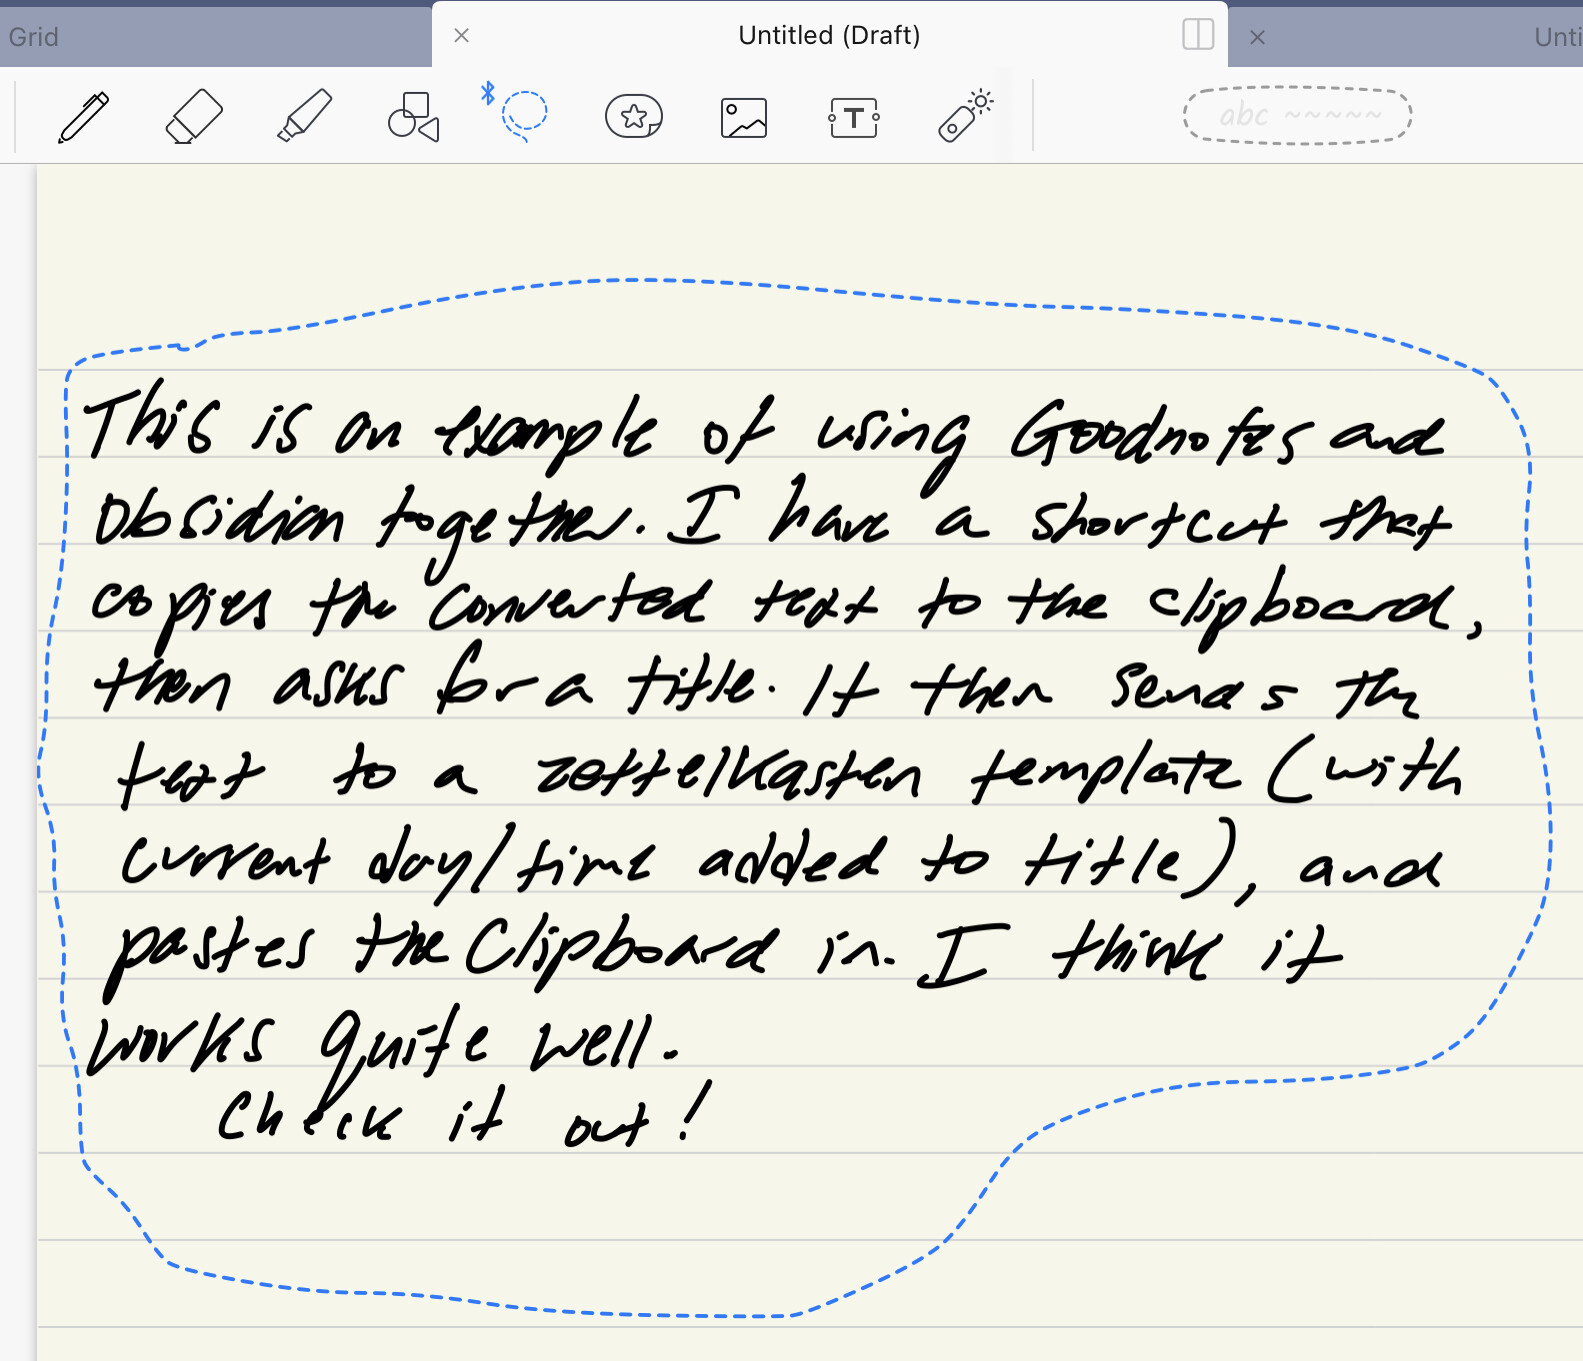 Grid
Untitled (Draft)
Unti
T
abc ~~~~~
This is an example of using Goodnotes and
Obsidian together. I have a shortcut that
copies the converted text to the clipboard,
then asks for a title. It then sends the
text to a zettelkasten template (with
current day/time added to title), and
pastes the Clipboard in. I think it
works quite well.
Check it out!